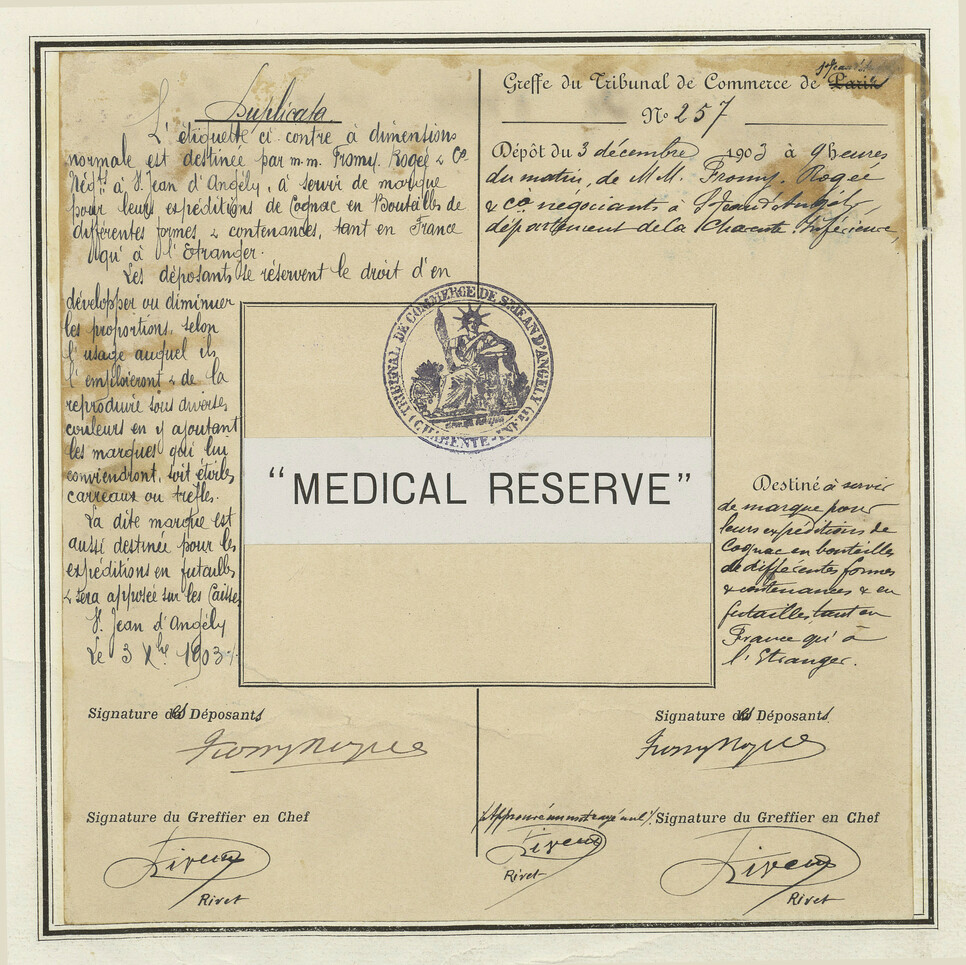 Duplicata
L'étiquette ci contre à dimensions
normale est destinée par m.m. Fromy, Rogée & Co
Négts à St Jean d'Angély, à servir de marque
pour leurs expéditions de Cognac en Bouteilles de
différentes formes & contenances, tant en France
qu'à l'Etranger.
Les déposants se réservent le droit d'en
développer ou diminuer
les proportions, selon
l'usage auquel ils
l'emploieront & de la
reproduire sous diverses
couleurs en y ajoutant
les marques qui lui
conviendront, soit étoiles,
carreaux ou trèfles.
La dite marque est
aussi destinée pour les
expéditions en futailles
& sera apposée sur les Caisses
St Jean d'Angély
Le 3 Xbre 1903
Greffe du Tribunal de Commerce de Paris
St Jean
No 257
Dépôt du 3 décembre 1903 à 9 heures
du matin, de M M. Fromy, Rogee
& Co négociants à St Jean d'Angély,
département de la Charente Inférieure,
TRIBUNAL DE COMMERCE DE ST JEAN D'ANGELY
(CHARENTE-INFRE)
"MEDICAL RESERVE"
Destiné à servir
de marque pour
leurs expéditions de
Cognac en bouteilles
de différentes formes
& contenances & en
futailles tant en
France qu'à
l'Etranger.
Signature des Déposants
Fromy Rogee
Signature des Déposants
Fromy Rogee
Signature du Greffier en Chef
Rivet
Rivet
Approuvé un mot rayé nul
Rivet
Rivet
Signature du Greffier en Chef
Rivet
Rivet